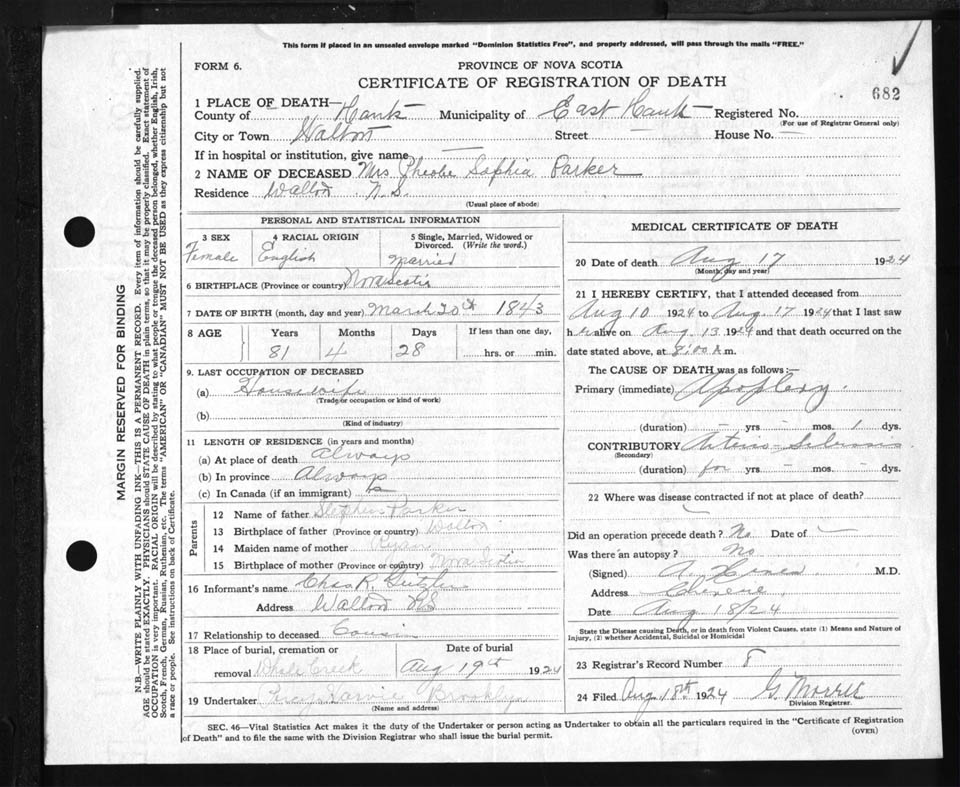 This form if placed in an unsealed envelope marked "Dominion Statistics Free", and properly addressed, will pass through the mails "FREE."
FORM 6.
PROVINCE OF NOVA SCOTIA
CERTIFICATE OF REGISTRATION OF DEATH
682
1 PLACE OF DEATH—
County of Hants Municipality of East Hants Registered No.
(For use of Registrar General only)
City or Town Walton Street — House No. —
If in hospital or institution, give name —
2 NAME OF DECEASED Mrs Pheobe Sophia Parker
Residence Walton N.S.
(Usual place of abode)
PERSONAL AND STATISTICAL INFORMATION
3 SEX 4 RACIAL ORIGIN 5 Single, Married, Widowed or
Divorced. (Write the word.)
Female English Married
6 BIRTHPLACE (Province or country) Nova Scotia
7 DATE OF BIRTH (month, day and year) March 20th 1843
8 AGE Years Months Days If less than one day,
81 4 28 hrs. or min.
9. LAST OCCUPATION OF DECEASED
(a) Housewife
(Trade or occupation or kind of work)
(b)
(Kind of industry)
11 LENGTH OF RESIDENCE (in years and months)
(a) At place of death always
(b) In province Always
(c) In Canada (if an immigrant)
Parents
12 Name of father Stephen Parker
13 Birthplace of father (Province or country) Walton
14 Maiden name of mother Ryan
15 Birthplace of mother (Province or country) Nova Scotia
16 Informant's name Chas R
Address Walton NS
17 Relationship to deceased Cousin
18 Place of burial, cremation or Date of burial
removal Whale Creek Aug 19th 1924
19 Undertaker Percy Jarvie Brooklyn
(Name and address)
MEDICAL CERTIFICATE OF DEATH
20 Date of death Aug 17 1924
(Month, day and year)
21 I HEREBY CERTIFY, that I attended deceased from
Aug 10 1924 to Aug. 17 1924 that I last saw
her alive on Aug. 13 1924 and that death occurred on
date stated above, at 8:00 A m.
The CAUSE OF DEATH was as follows:—
Primary (immediate) Apoplexy.
(duration) — yrs — mos. 1 dys.
CONTRIBUTORY Arterio-Sclerosis
(Secondary)
(duration) for yrs — mos. — dys.
22 Where was disease contracted if not at place of death?
Did an operation precede death? No Date of —
Was there an autopsy? No
(Signed) M.D.
Address
Date Aug 18/24
State the Disease causing Death, or in death from Violent Causes, state (1) Means and Nature of
Injury, (2) whether Accidental, Suicidal or Homicidal
23 Registrar's Record Number 8
24 Filed Aug 18th 1924 G. Morrell
Division Registrar.
SEC. 46—Vital Statistics Act makes it the duty of the Undertaker or person acting as Undertaker to obtain all the particulars required in the "Certificate of Registration
of Death" and to file the same with the Division Registrar who shall issue the burial permit.
(OVER)
MARGIN RESERVED FOR BINDING
N.B.—WRITE PLAINLY WITH UNFADING INK—THIS IS A PERMANENT RECORD. Every item of information should be carefully supplied.
AGE should be stated EXACTLY. PHYSICIANS should STATE CAUSE OF DEATH in plain terms, so that it may be properly classified. Exact statement of
OCCUPATION is very important. RACIAL ORIGIN will be described by stating to what people or tongue the deceased person belonged, whether English, Irish,
Scotch, French, German, Russian, Ruthenian, etc. The terms "AMERICAN" OR "CANADIAN" MUST NOT BE USED as they express citizenship but not
a race or people. See instructions on back of Certificate.